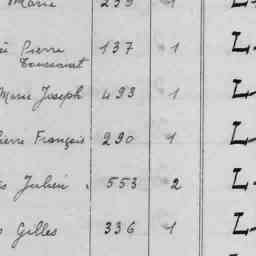 Marie 239 1 L
Pierre 137 1 L
Toussaint
Marie Joseph 493 1 L
Pierre François 290 1 L
Julien . 553 2 L
Gilles 336 1 L